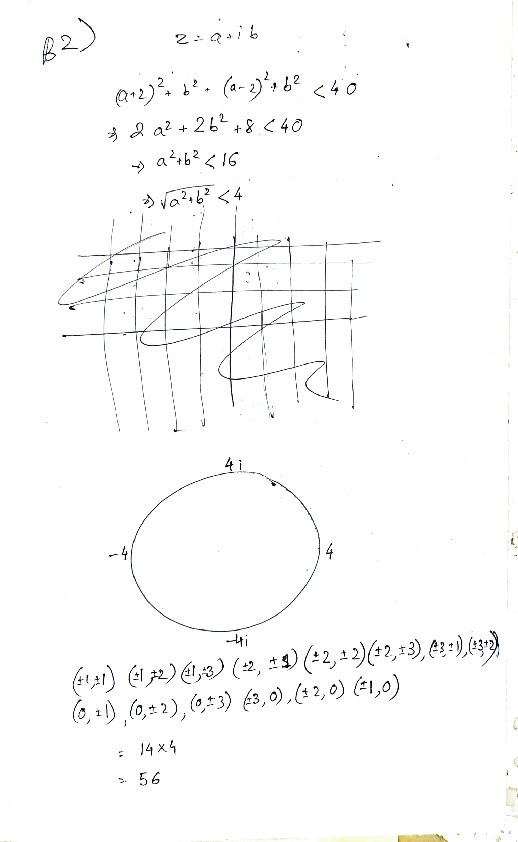 B2) z = a+ib
(a+2)² + b² + (a-2)² + b² < 40
⇒ 2a² + 2b² + 8 < 40
⇒ a²+b² < 16
⇒ √a²+b² < 4
4i
-4 4
-4i
(±1,±1) (±1,±2) (±1,±3) (±2, ±1) (±2, ±2) (±2, ±3), (±3,±1), (±3,±2)
(0, ±1), (0, ±2), (0, ±3) (±3, 0), (±2, 0) (±1, 0)
= 14×4
= 56